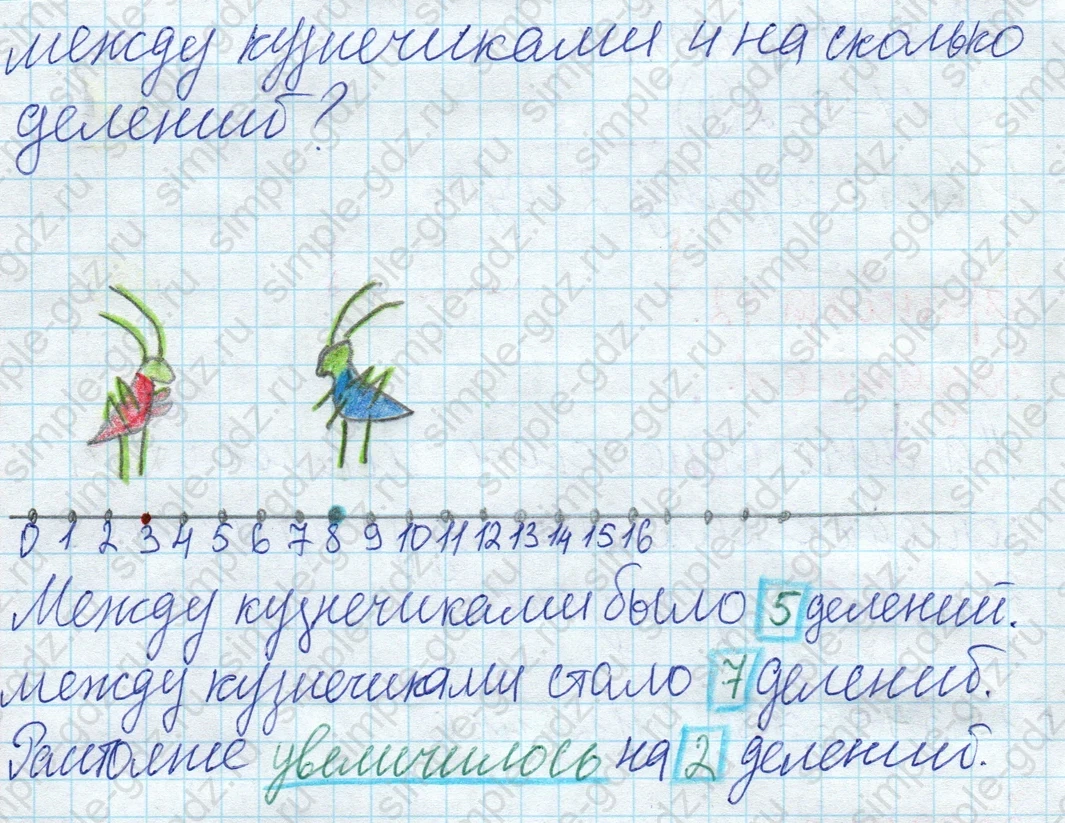 между кузнечиками и на сколько
делений?
0 1 2 3 4 5 6 7 8 9 10 11 12 13 14 15 16
Между кузнечиками было 5 делений.
между кузнечиками стало 7 делений.
Растояние увеличилось на 2 делений.
simple-gdz.ru